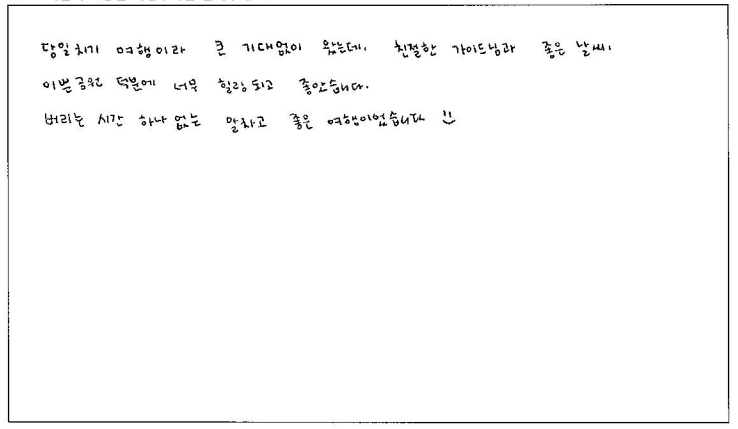 당일치기 여행이라 큰 기대없이 왔는데, 친절한 가이드님과 좋은 날씨,
이쁜공원 덕분에 너무 힐링되고 좋았습니다.
버리는 시간 하나 없는 알차고 좋은 여행이었습니다 :)